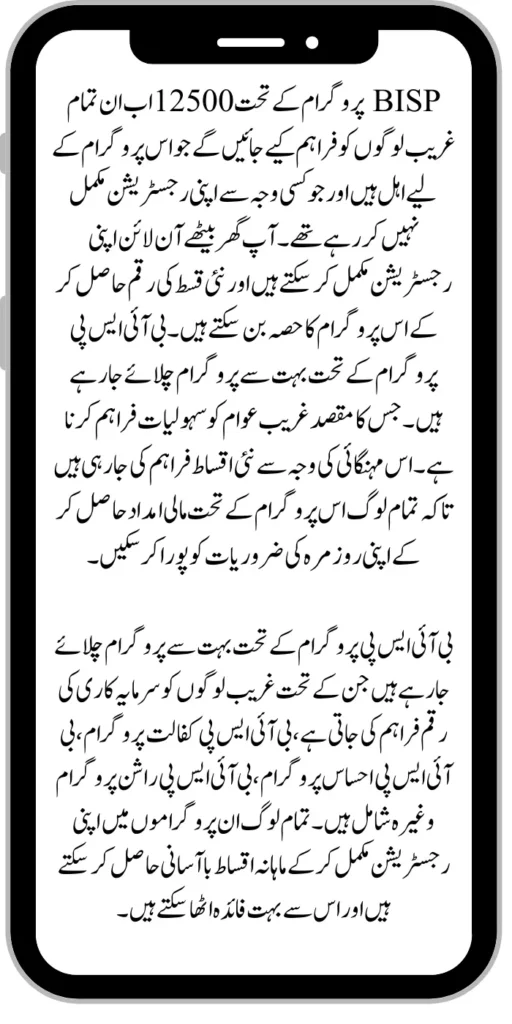 BISP پروگرام کے تحت 12500 اب ان تمام
غریب لوگوں کو فراہم کیے جائیں گے جو اس پروگرام کے
لیے اہل ہیں اور جو کسی وجہ سے اپنی رجسٹریشن مکمل
نہیں کر رہے تھے۔ آپ گھر بیٹھے آن لائن اپنی
رجسٹریشن مکمل کر سکتے ہیں اور نئی قسط کی رقم حاصل کر
کے اس پروگرام کا حصہ بن سکتے ہیں۔ بی آئی ایس پی
پروگرام کے تحت بہت سے پروگرام چلائے جا رہے
ہیں۔ جس کا مقصد غریب عوام کو سہولیات فراہم کرنا
ہے۔ اس مہنگائی کی وجہ سے نئی اقساط فراہم کی جا رہی ہیں
تاکہ تمام لوگ اس پروگرام کے تحت مالی امداد حاصل کر
کے اپنی روز مرہ کی ضروریات کو پورا کر سکیں۔
بی آئی ایس پی پروگرام کے تحت بہت سے پروگرام چلائے
جا رہے ہیں جن کے تحت غریب لوگوں کو سرمایہ کاری کی
رقم فراہم کی جاتی ہے، بی آئی ایس پی کفالت پروگرام، بی
آئی ایس پی احساس پروگرام، بی آئی ایس پی راشن پروگرام
وغیرہ شامل ہیں۔ تمام لوگ ان پروگراموں میں اپنی
رجسٹریشن مکمل کر کے ماہانہ اقساط باآسانی حاصل کر سکتے
ہیں اور اس سے بہت فائدہ اٹھا سکتے ہیں۔